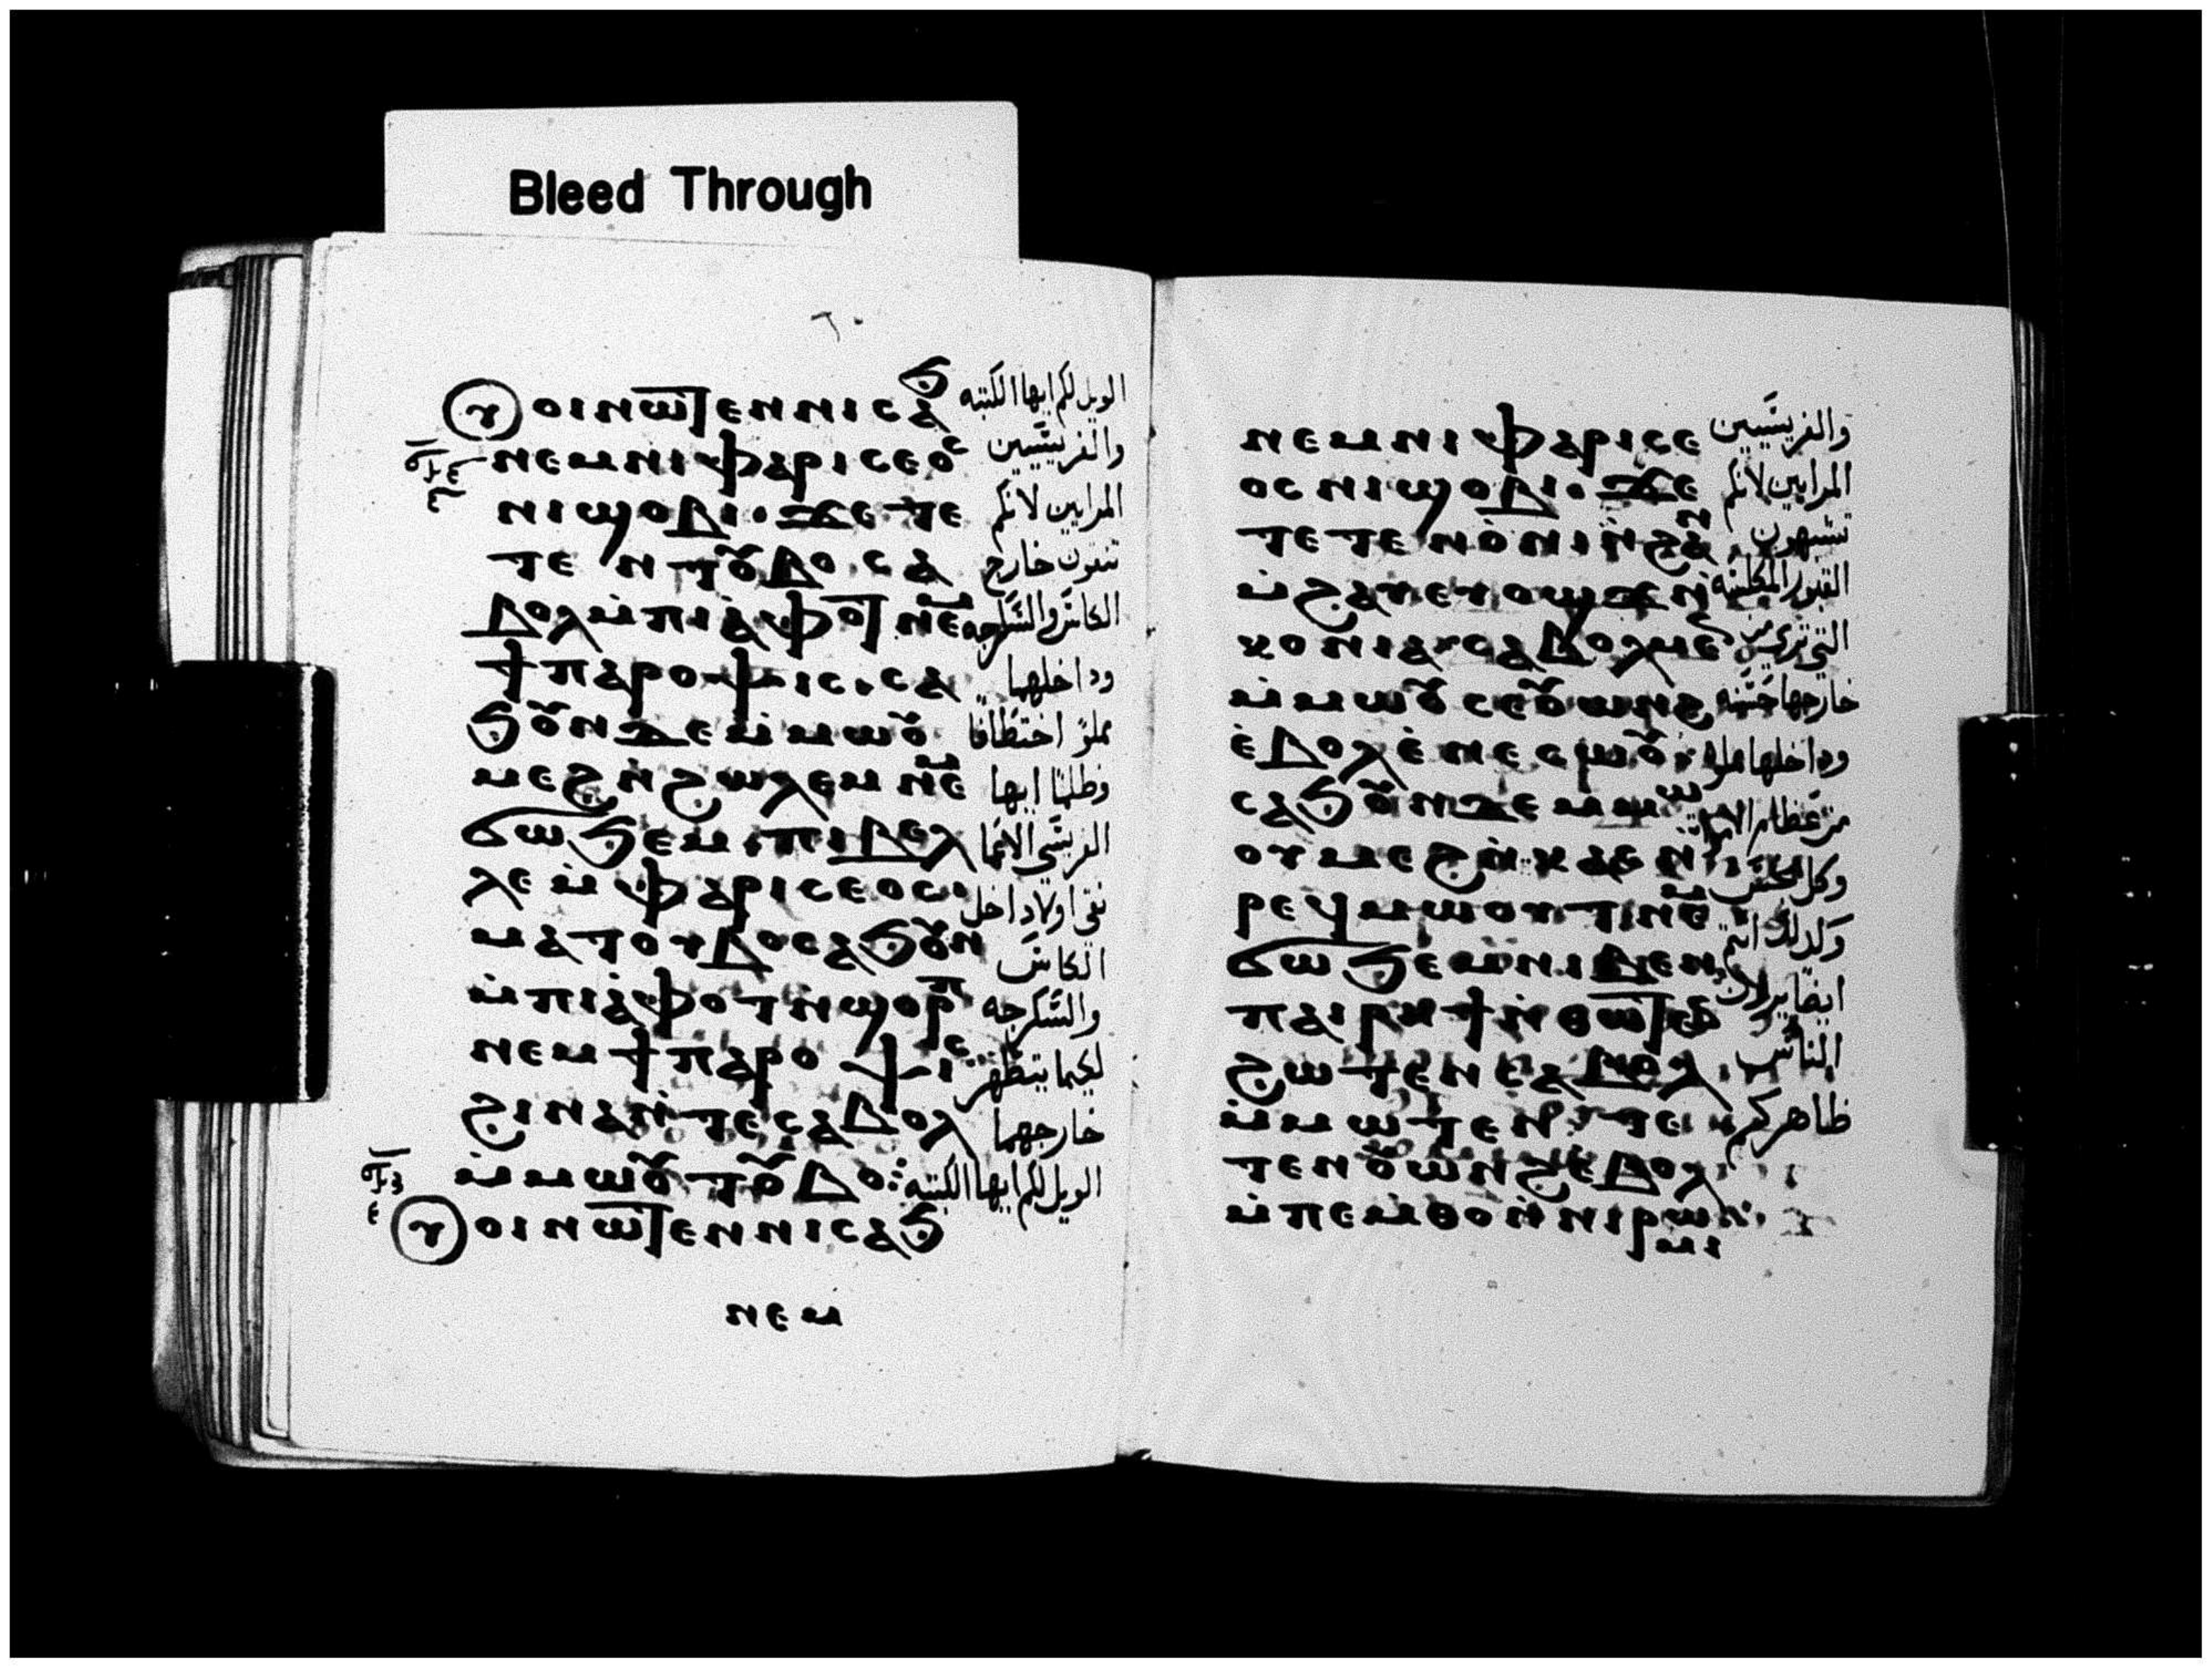 Bleed Through
ⲟⲩⲟⲓ ⲛⲱⲧⲉⲛ ⲛⲓⲥⲁϧ
ⲛⲉⲙ ⲛⲓⲫⲁⲣⲓⲥⲉⲟⲥ
ⲛⲓϣⲟⲃⲓ· ϫⲉ ⲧⲉ
ⲧⲉⲛⲧⲟⲩⲃⲟ ⲥⲁ
ⲃⲟⲗ ⲙ̀ⲡⲓⲁ̀ⲫⲟⲧ ⲛⲉⲙ
ϯⲡⲁⲣⲟⲯⲓⲥ· ⲥⲁ
ϧⲟⲩⲛ ⲇⲉ ⲙ̀ⲙⲱⲟⲩ
ⲙⲉϩ ⲛ̀ϩⲱⲗⲉⲙ ⲛⲉⲙ
ϭⲱϧⲉⲙ· ⲡⲓⲃⲉⲗ
ⲗⲉ ⲙ̀ⲫⲁⲣⲓⲥⲉⲟⲥ·
ⲙⲁⲧⲟⲩⲃⲟ ⲥⲁϧⲟⲩⲛ
ⲙ̀ⲡⲓⲁ̀ⲫⲟⲧ ⲛ̀ϣⲟⲣⲡ
ⲛⲉⲙ ϯⲡⲁⲣⲟⲯⲓⲥ
ϩⲓⲛⲁ ⲛ̀ⲧⲉ ⲥⲁⲃⲟⲗ
ⲙ̀ⲙⲱⲟⲩ ⲧⲟⲩⲃⲟ:
ⲟⲩⲟⲓ ⲛⲱⲧⲉⲛ ⲛⲓⲥⲁϧ
ⲛⲉⲙ
الويل لكم ايها الكتبه
والفريسيين
المرايين لانكم
تنقون خارج
الكاس والسكرجه
وداخلهما
مملؤ اختطافا
وظلما ايها
الفريسي الاعما
نقي اولا داخل
الكاس
والسكرجه
لكيما يتطهر
خارجهما
الويل لكم ايها الكتبه
ⲛⲉⲙ ⲛⲓⲫⲁⲣⲓⲥⲉ
ⲟⲥ ⲛⲓϣⲟⲃⲓ· ϫⲉ
ⲧⲉⲧⲉⲛⲟ̀ⲛⲓ ⲛ̀ϩⲁⲛ
ⲙ̀ϩⲁⲩ ⲉⲩⲟϣϫ ⲛ̀
ⲕⲟⲛⲓⲁ· ⲥⲁⲃⲟⲗ ⲙⲉⲛ
ⲙ̀ⲙⲱⲟⲩ ⲥⲉⲟⲩⲱⲛϩ
ⲉ̀ⲃⲟⲗ ⲉ̀ⲛⲉⲥⲱⲟⲩ·
ⲥⲁϧⲟⲩⲛ ⲇⲉ ⲙ̀ⲙⲱ
ⲟⲩ ⲙⲉϩ ⲛ̀ⲕⲁⲥ ⲛ̀
ⲣⲉϥⲙⲱⲟⲩⲧ ⲛⲉⲙ
ϭⲱϧⲉⲙ ⲛⲓⲃⲉⲛ·
ⲡⲁⲓⲣⲏϯ ⲛ̀ⲑⲱⲧⲉⲛ
ϩⲱⲧⲉⲛ ⲥⲁⲃⲟⲗ
ⲙ̀ⲙⲱⲧⲉⲛ ⲧⲉ
ⲧⲉⲛⲟⲩⲱⲛϩ ⲉⲃⲟⲗ
ⲙ̀ⲡⲉⲙⲑⲟ ⲛ̀ⲛⲓⲣⲱ
ⲙⲓ
والفريسيين
المرايين لانكم
تشبهون
القبور المكلسه
التي ترى من
خارجها حسنه
وداخلها مملوه
من عظام الاموات
وكل نجس
وكذلك انتم
ايضا
الناس
ظاهركم